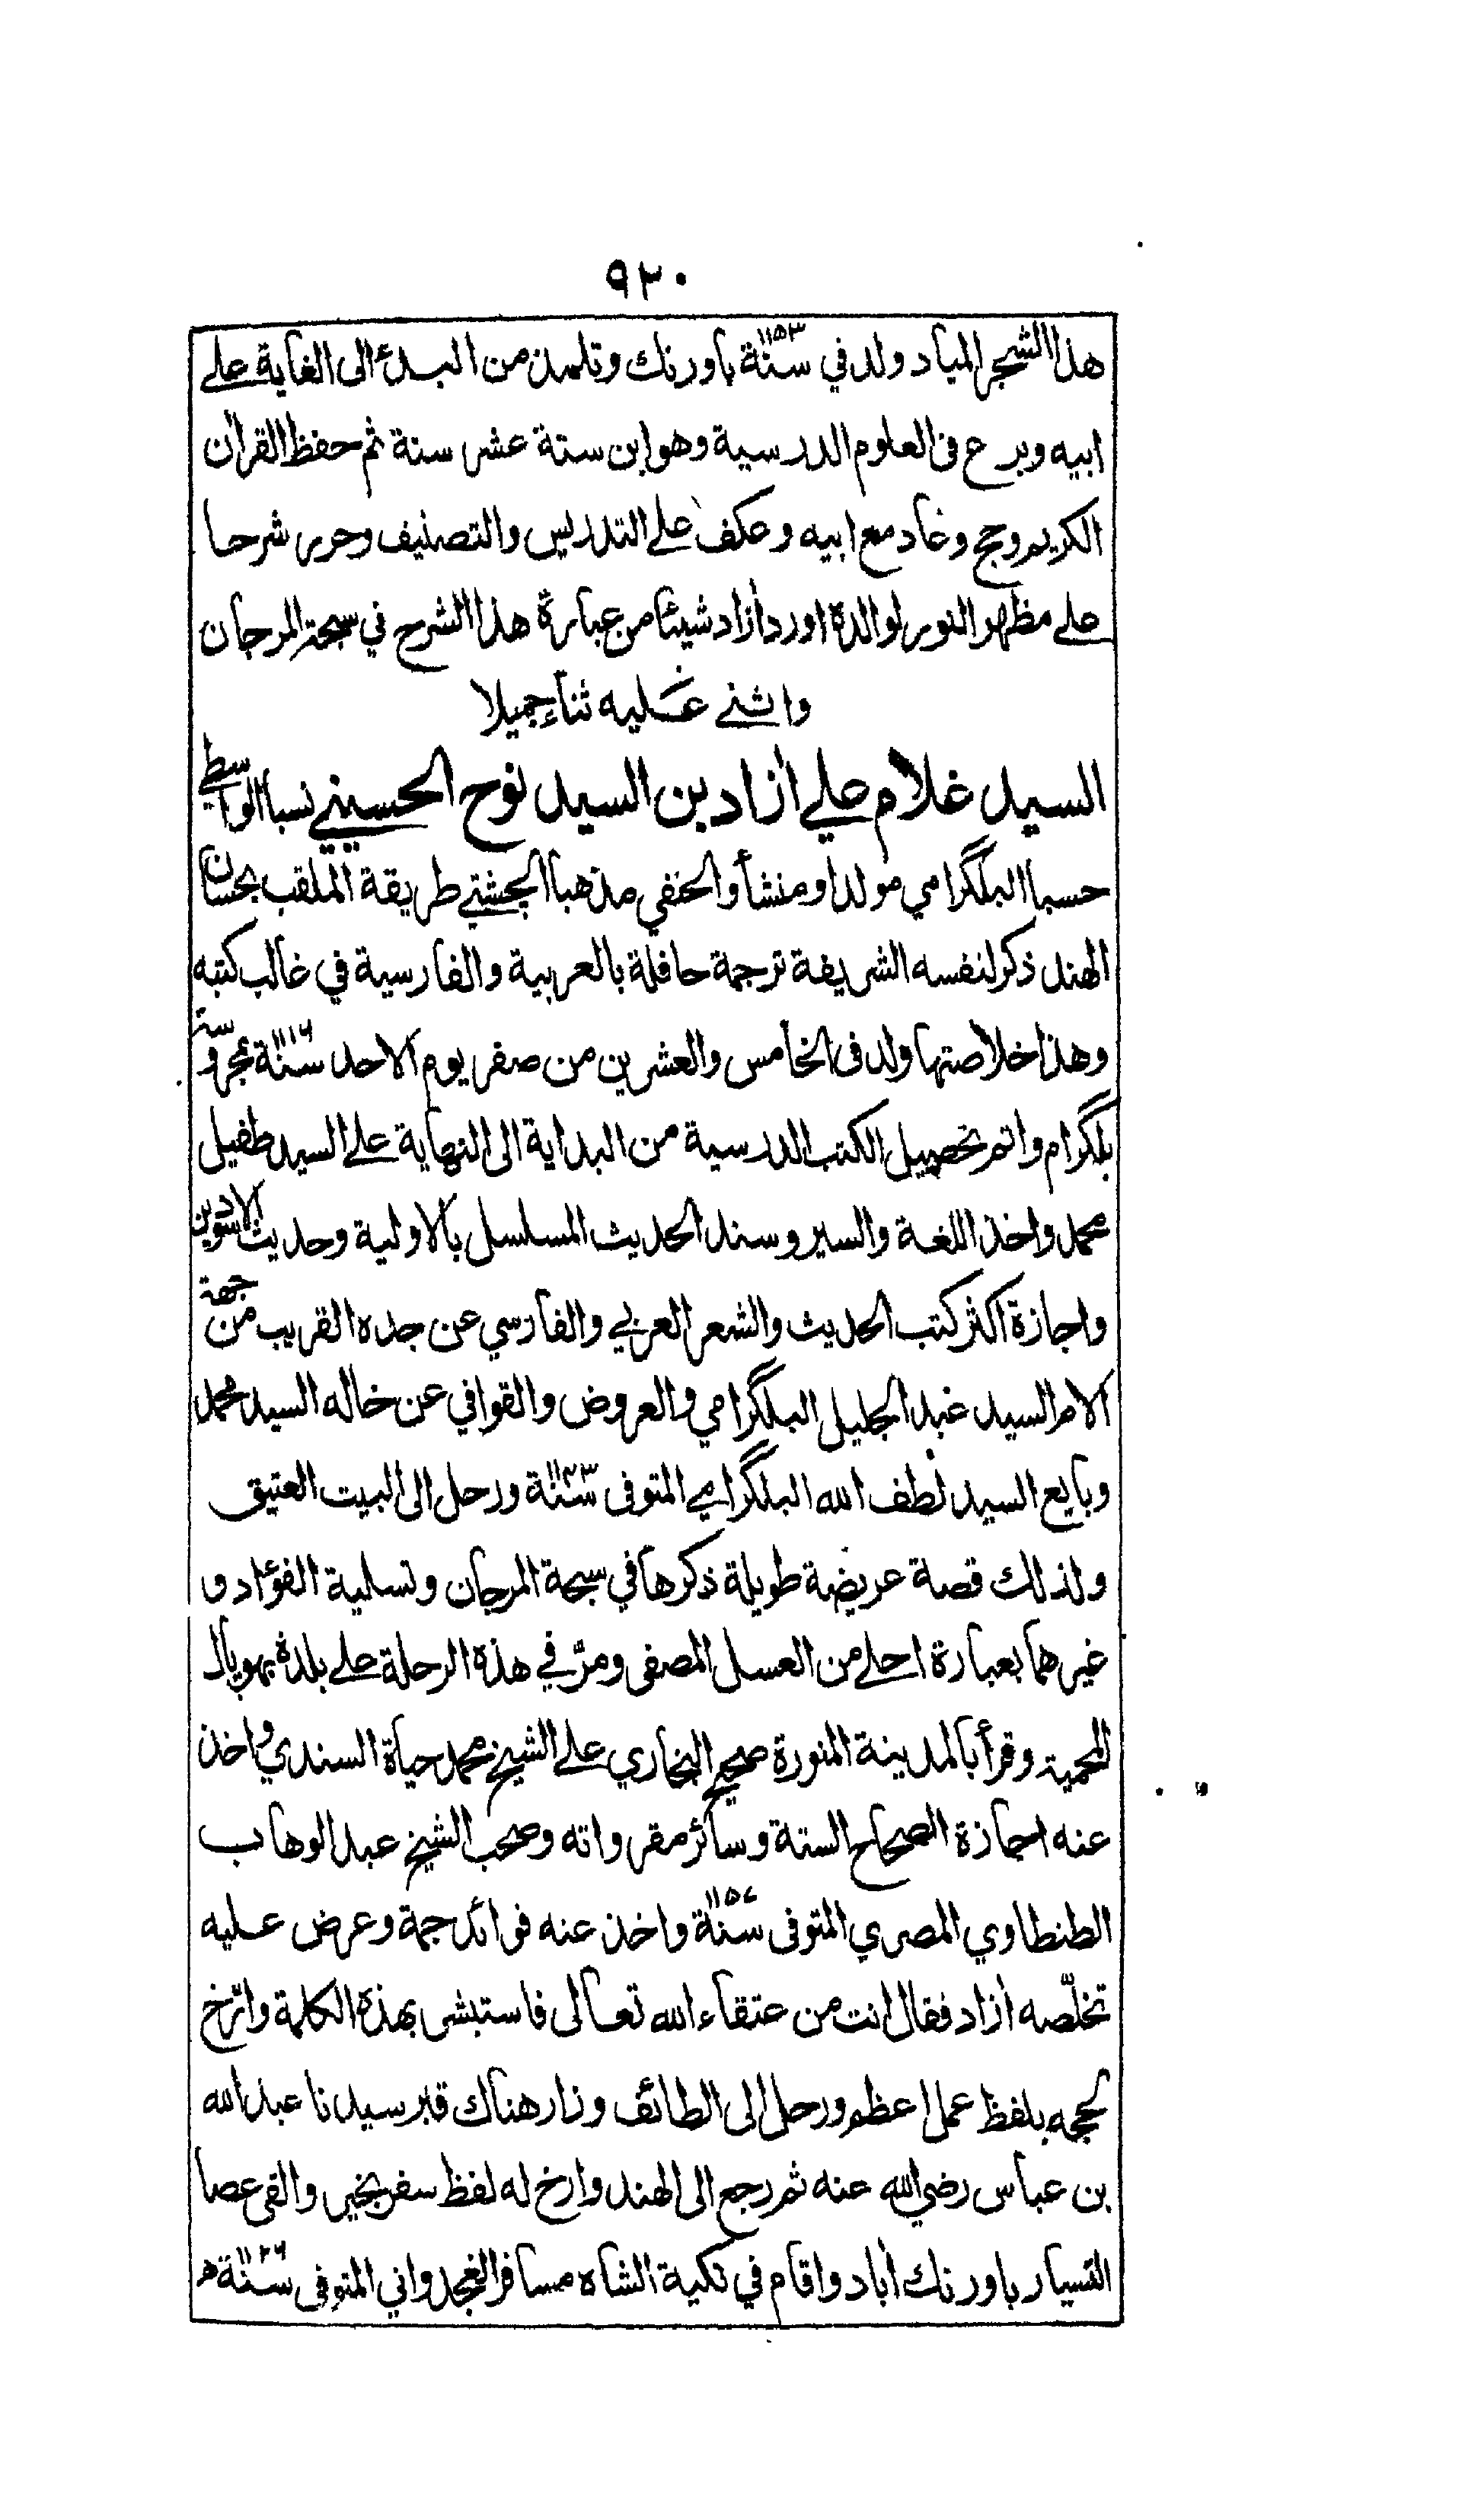 ٩٢٠
هذا الشجر المياد ولد في سنة ١١٥٣ باورنك وتلمذ من البدء الى الغاية على
ابيه وبرع فى العلوم الدرسية وهو ابن ستة عشر سنة ثم حفظ القرآن
الكريم وحج وعاد مع ابيه وعكف على التدريس والتصنيف وحرر شرحا
على مظهر النور لوالده اورد آزاد شيئا من عبارة هذا الشرح في سبحة المرجان
واثنى عليه ثناء جميلا
السيد غلام علي آزاد بن السيد نوح الحسيني نسبا الواسطي
حسبا البلگرامي مولدا ومنشأ والحنفي مذهبا الچشتي طريقة الملقب بحسان
الهند ذكر لنفسه الشريفة ترجمة حافلة بالعربية والفارسية في غالب كتبه
وهذا خلاصتها ولد فى الخامس والعشرين من صفر يوم الاحد سنة ١١١٦ بمحروسة
بلگرام واتم تحصيل الكتب الدرسية من البداية الى النهاية على السيد طفيل
محمد واخذ اللغة والسير وسند الحديث المسلسل بالاولية وحديث الاسودين
واجازة اكثر كتب الحديث والشعر العربي والفارسي عن جده القريب من جهة
الام السيد عبد الجليل البلگرامي والعروض والقوافي عن خاله السيد محمد
وبايع السيد لطف الله البلگرامي المتوفى سنة ١١٤٣ ورحل الى البيت العتيق
ولذلك قصة عريضة طويلة ذكرها في سبحة المرجان وتسلية الفؤاد و
غيرهما بعبارة احلى من العسل المصفى ومرّ في هذه الرحلة على بلدة بهوپال
المحمية وقرأ بالمدينة المنورة صحيح البخاري على الشيخ محمد حياة السندي واخذ
عنه اجازة الصحاح الستة وسائر مقرواته وصحب الشيخ عبد الوهاب
الطنطاوي المصري المتوفى سنة ١١٥٧ واخذ عنه فوائد جمة وعرض عليه
تخلّصه آزاد فقال انت من عتقاء الله تعالى فاستبشر بهذه الكلمة وارّخ
لحجه بلفظ عمل اعظم ورحل الى الطائف وزار هناك قبر سيدنا عبد الله
بن عباس رضي الله عنه ثم رجع الى الهند وارخ له لفظ سفر بخير والقى عصا
التسيار باورنك آباد واقام في تكية الشاه مسافر الغجدواني المتوفى سنة ١١٢٦ م